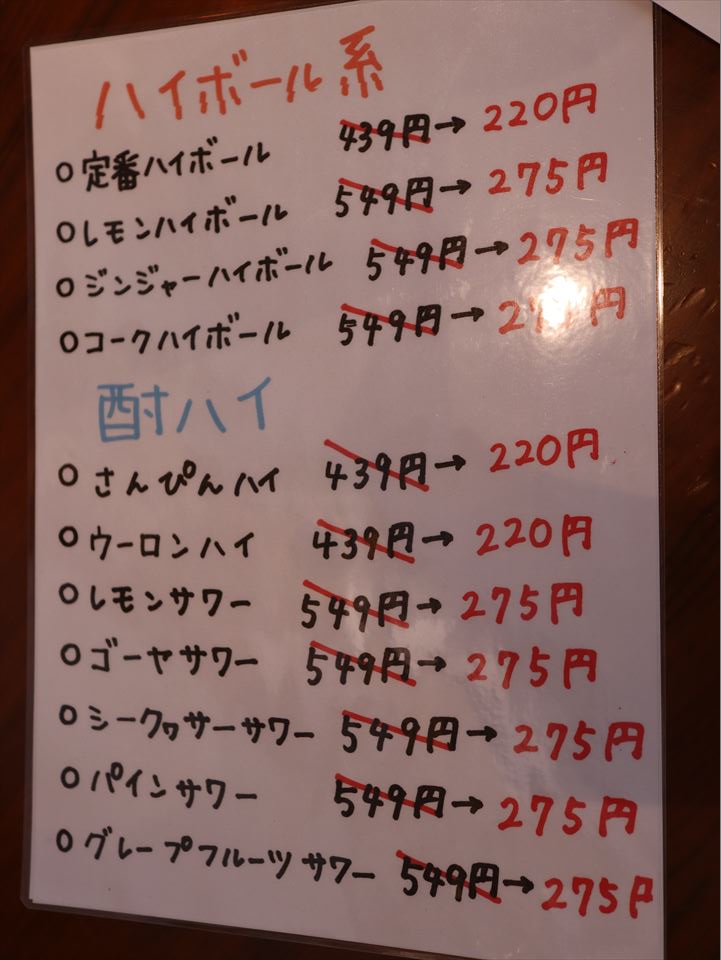 ハイボール系
○定番ハイボール 439円→220円
○レモンハイボール 549円→275円
○ジンジャーハイボール 549円→275円
○コークハイボール 549円→
酎ハイ
○さんぴんハイ 439円→220円
○ウーロンハイ 439円→220円
○レモンサワー 549円→275円
○ゴーヤサワー 549円→275円
○シークヮサーサワー 549円→275円
○パインサワー 549円→275円
○グレープフルーツサワー 549円→275円